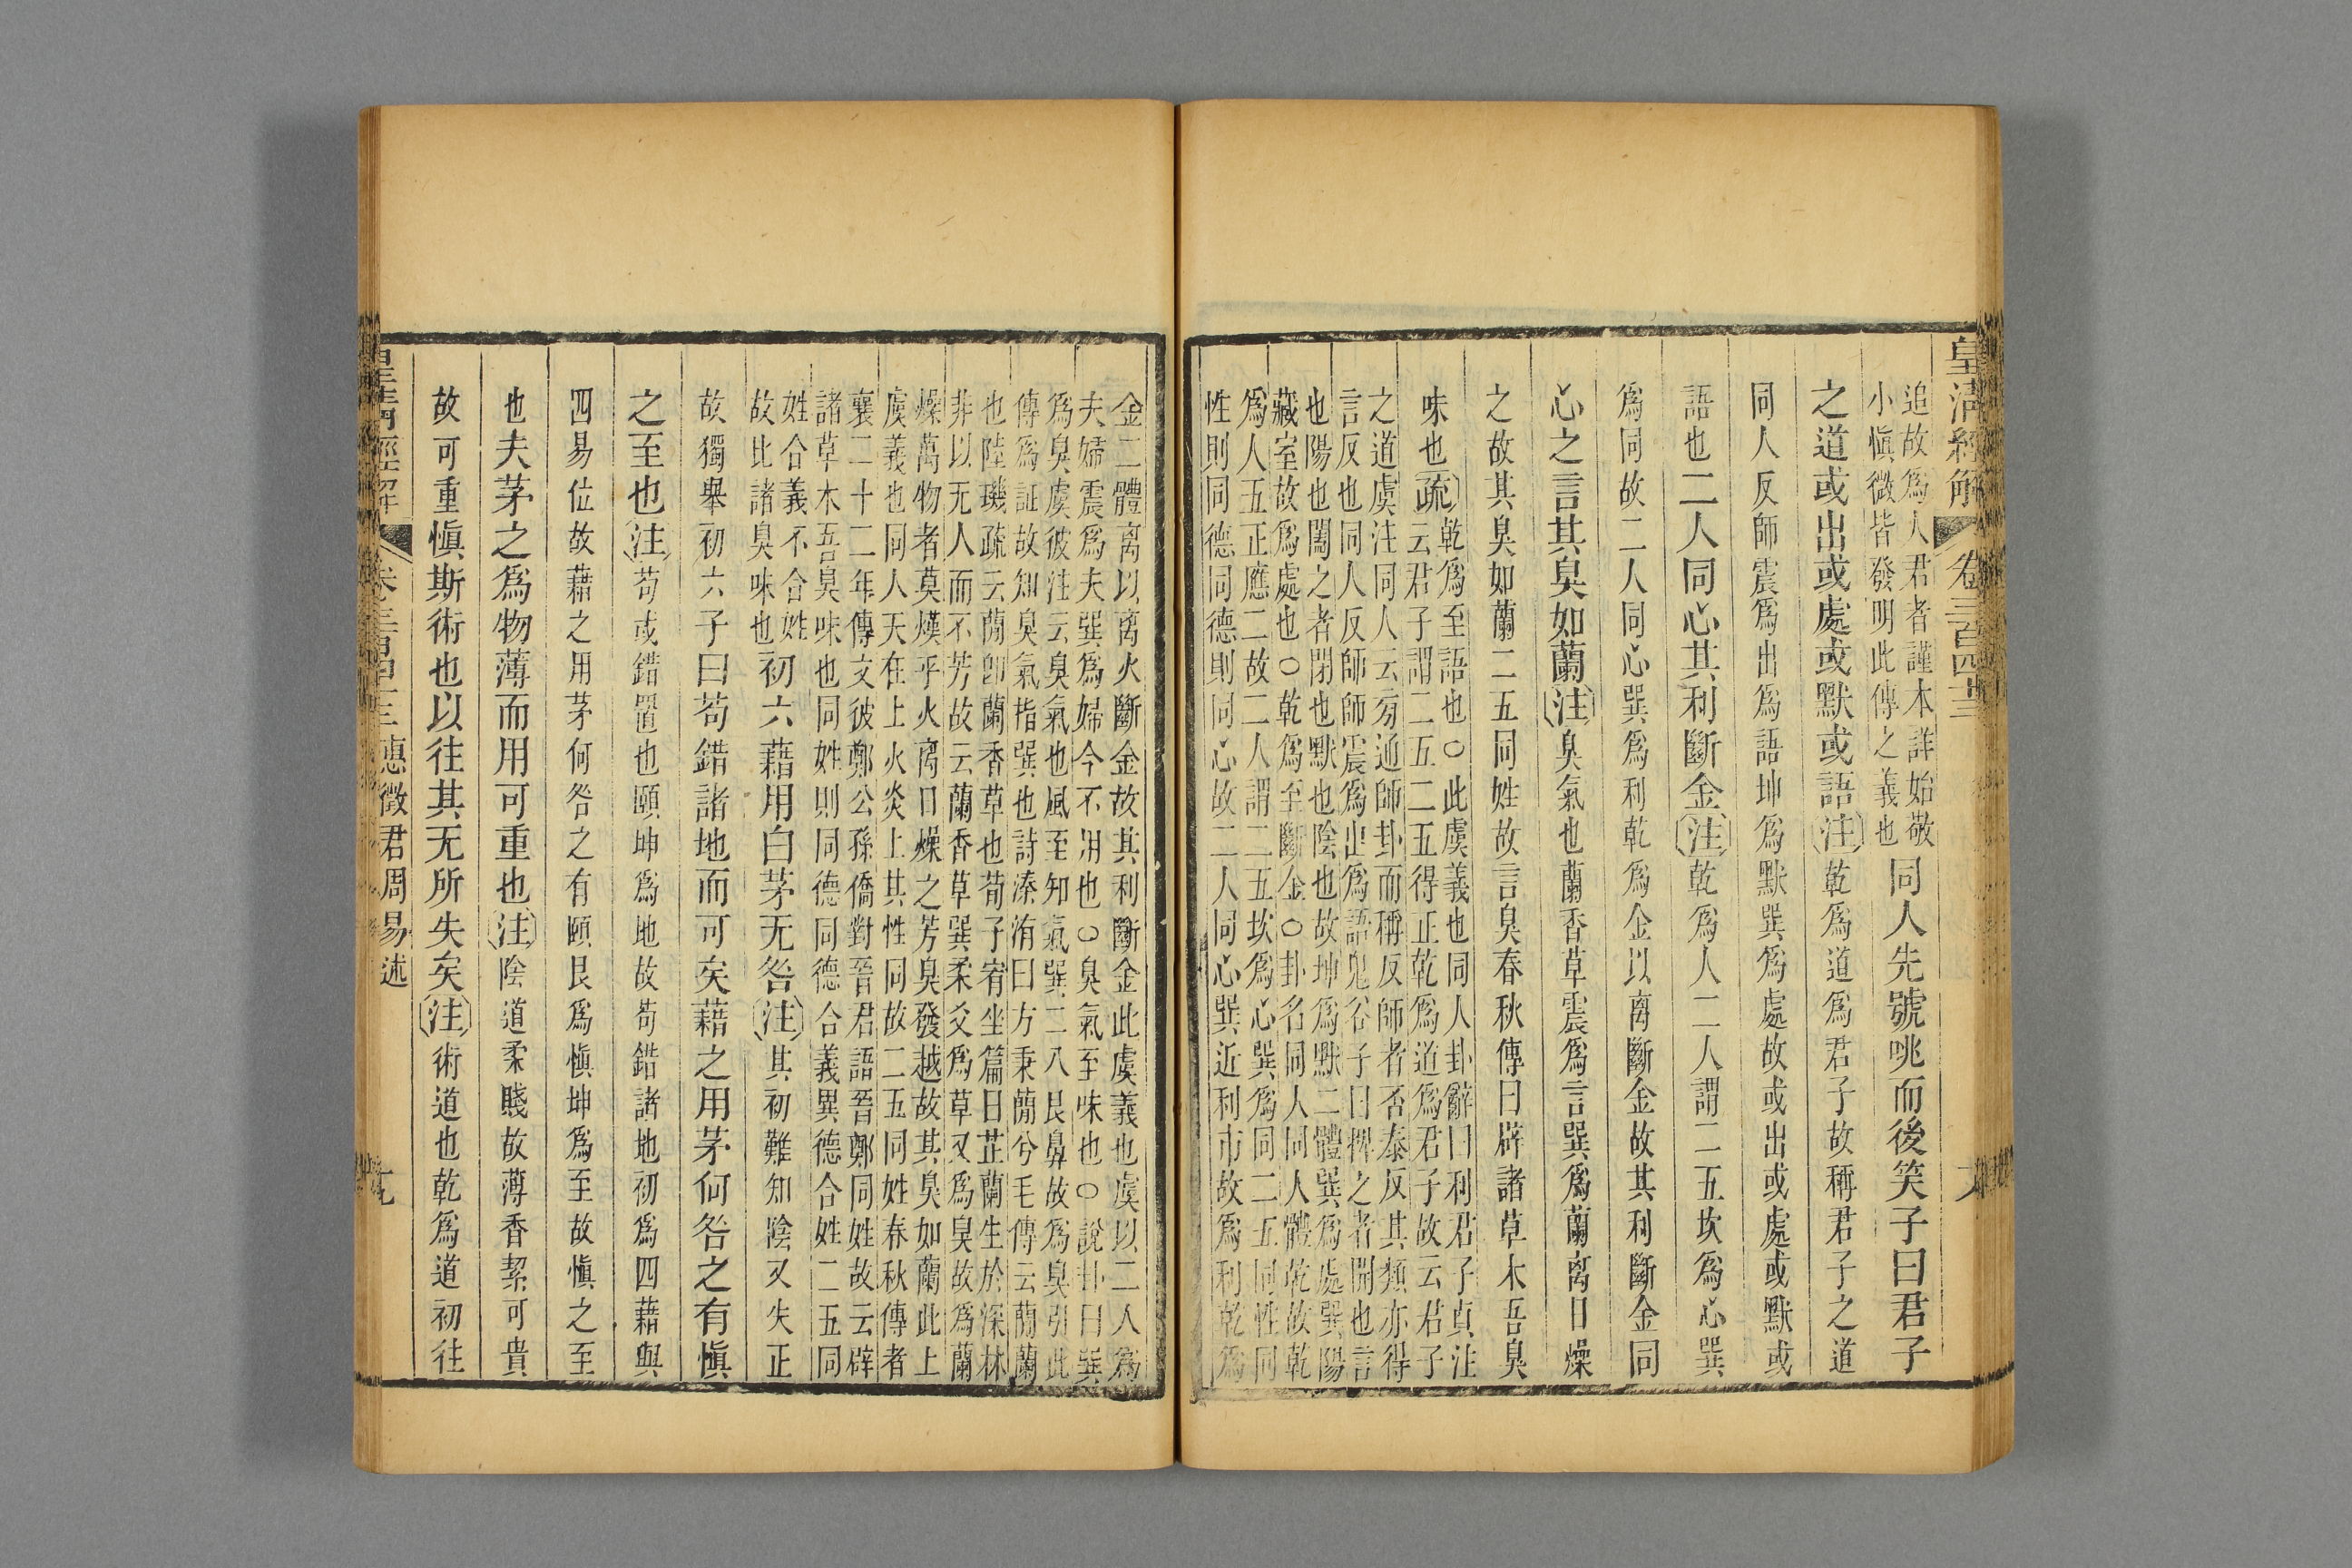 皇清經解
卷三百四十三
追故爲人君者謹本詳始敬
小愼微皆發明此傳之義也
同人先號咷而後笑子曰君子
之道或出或處或默或語注乾爲道爲君子故稱君子之道
同人反師震爲出爲語坤爲默巽爲處故或出或處或默或
語也二人同心其利斷金注乾爲人二人謂二五坎爲心巽
爲同故二人同心巽爲利乾爲金以离斷金故其利斷金同
心之言其臭如蘭注臭氣也蘭香草震爲言巽爲蘭离日燥
之故其臭如蘭二五同姓故言臭春秋傳曰辟諸草木吾臭
味也疏
乾爲至語也○此虞義也同人卦辭曰利君子貞注
云君子謂二五二五得正乾爲道爲君子故云君子
之道虞注同人云旁通師卦而稱反師者否泰反其類亦得
言反也同人反師師震爲出爲語鬼谷子曰捭之者開也言
也陽也闔之者閉也默也陰也故坤爲默二體巽爲處巽陽
藏室故爲處也○乾爲至斷金○卦名同人同人體乾故乾
爲人五正應二故二人謂二五坎爲心巽爲同二五同性同
性則同德同德則同心故二人同心巽近利市故爲利乾爲
金二體离以离火斷金故其利斷金此虞義也虞以二人爲
夫婦震爲夫巽爲婦今不用也○臭氣至味也○說卦曰巽
爲臭虞彼注云臭氣也風至知氣巽二入艮鼻故爲臭引此
傳爲証故知臭氣指巽也詩溱洧曰方秉蕑兮毛傳云蕑蘭
也陸璣疏云蕑卽蘭香草也荀子宥坐篇曰芷蘭生於深林
非以无人而不芳故云蘭香草巽柔爻爲草又爲臭故爲蘭
燥萬物者莫熯乎火离日燥之芳臭發越故其臭如蘭此上
虞義也同人天在上火炎上其性同故二五同姓春秋傳者
襄二十二年傳文彼鄭公孫僑對晉君語晉鄭同姓故云辟
諸草木吾臭味也同姓則同德同德合義異德合姓二五同
姓合義不合姓
故比諸臭味也
初六藉用白茅无咎注其初難知陰又失正
故獨舉初六子曰苟錯諸地而可矣藉之用茅何咎之有愼
之至也注苟或錯置也頤坤爲地故苟錯諸地初爲四藉與
四易位故藉之用茅何咎之有頤艮爲愼坤爲至故愼之至
也夫茅之爲物薄而用可重也注陰道柔賤故薄香絜可貴
故可重愼斯術也以往其无所失矣注術道也乾爲道初往
皇清經解
卷三百四十三 惠徵君周易述
九